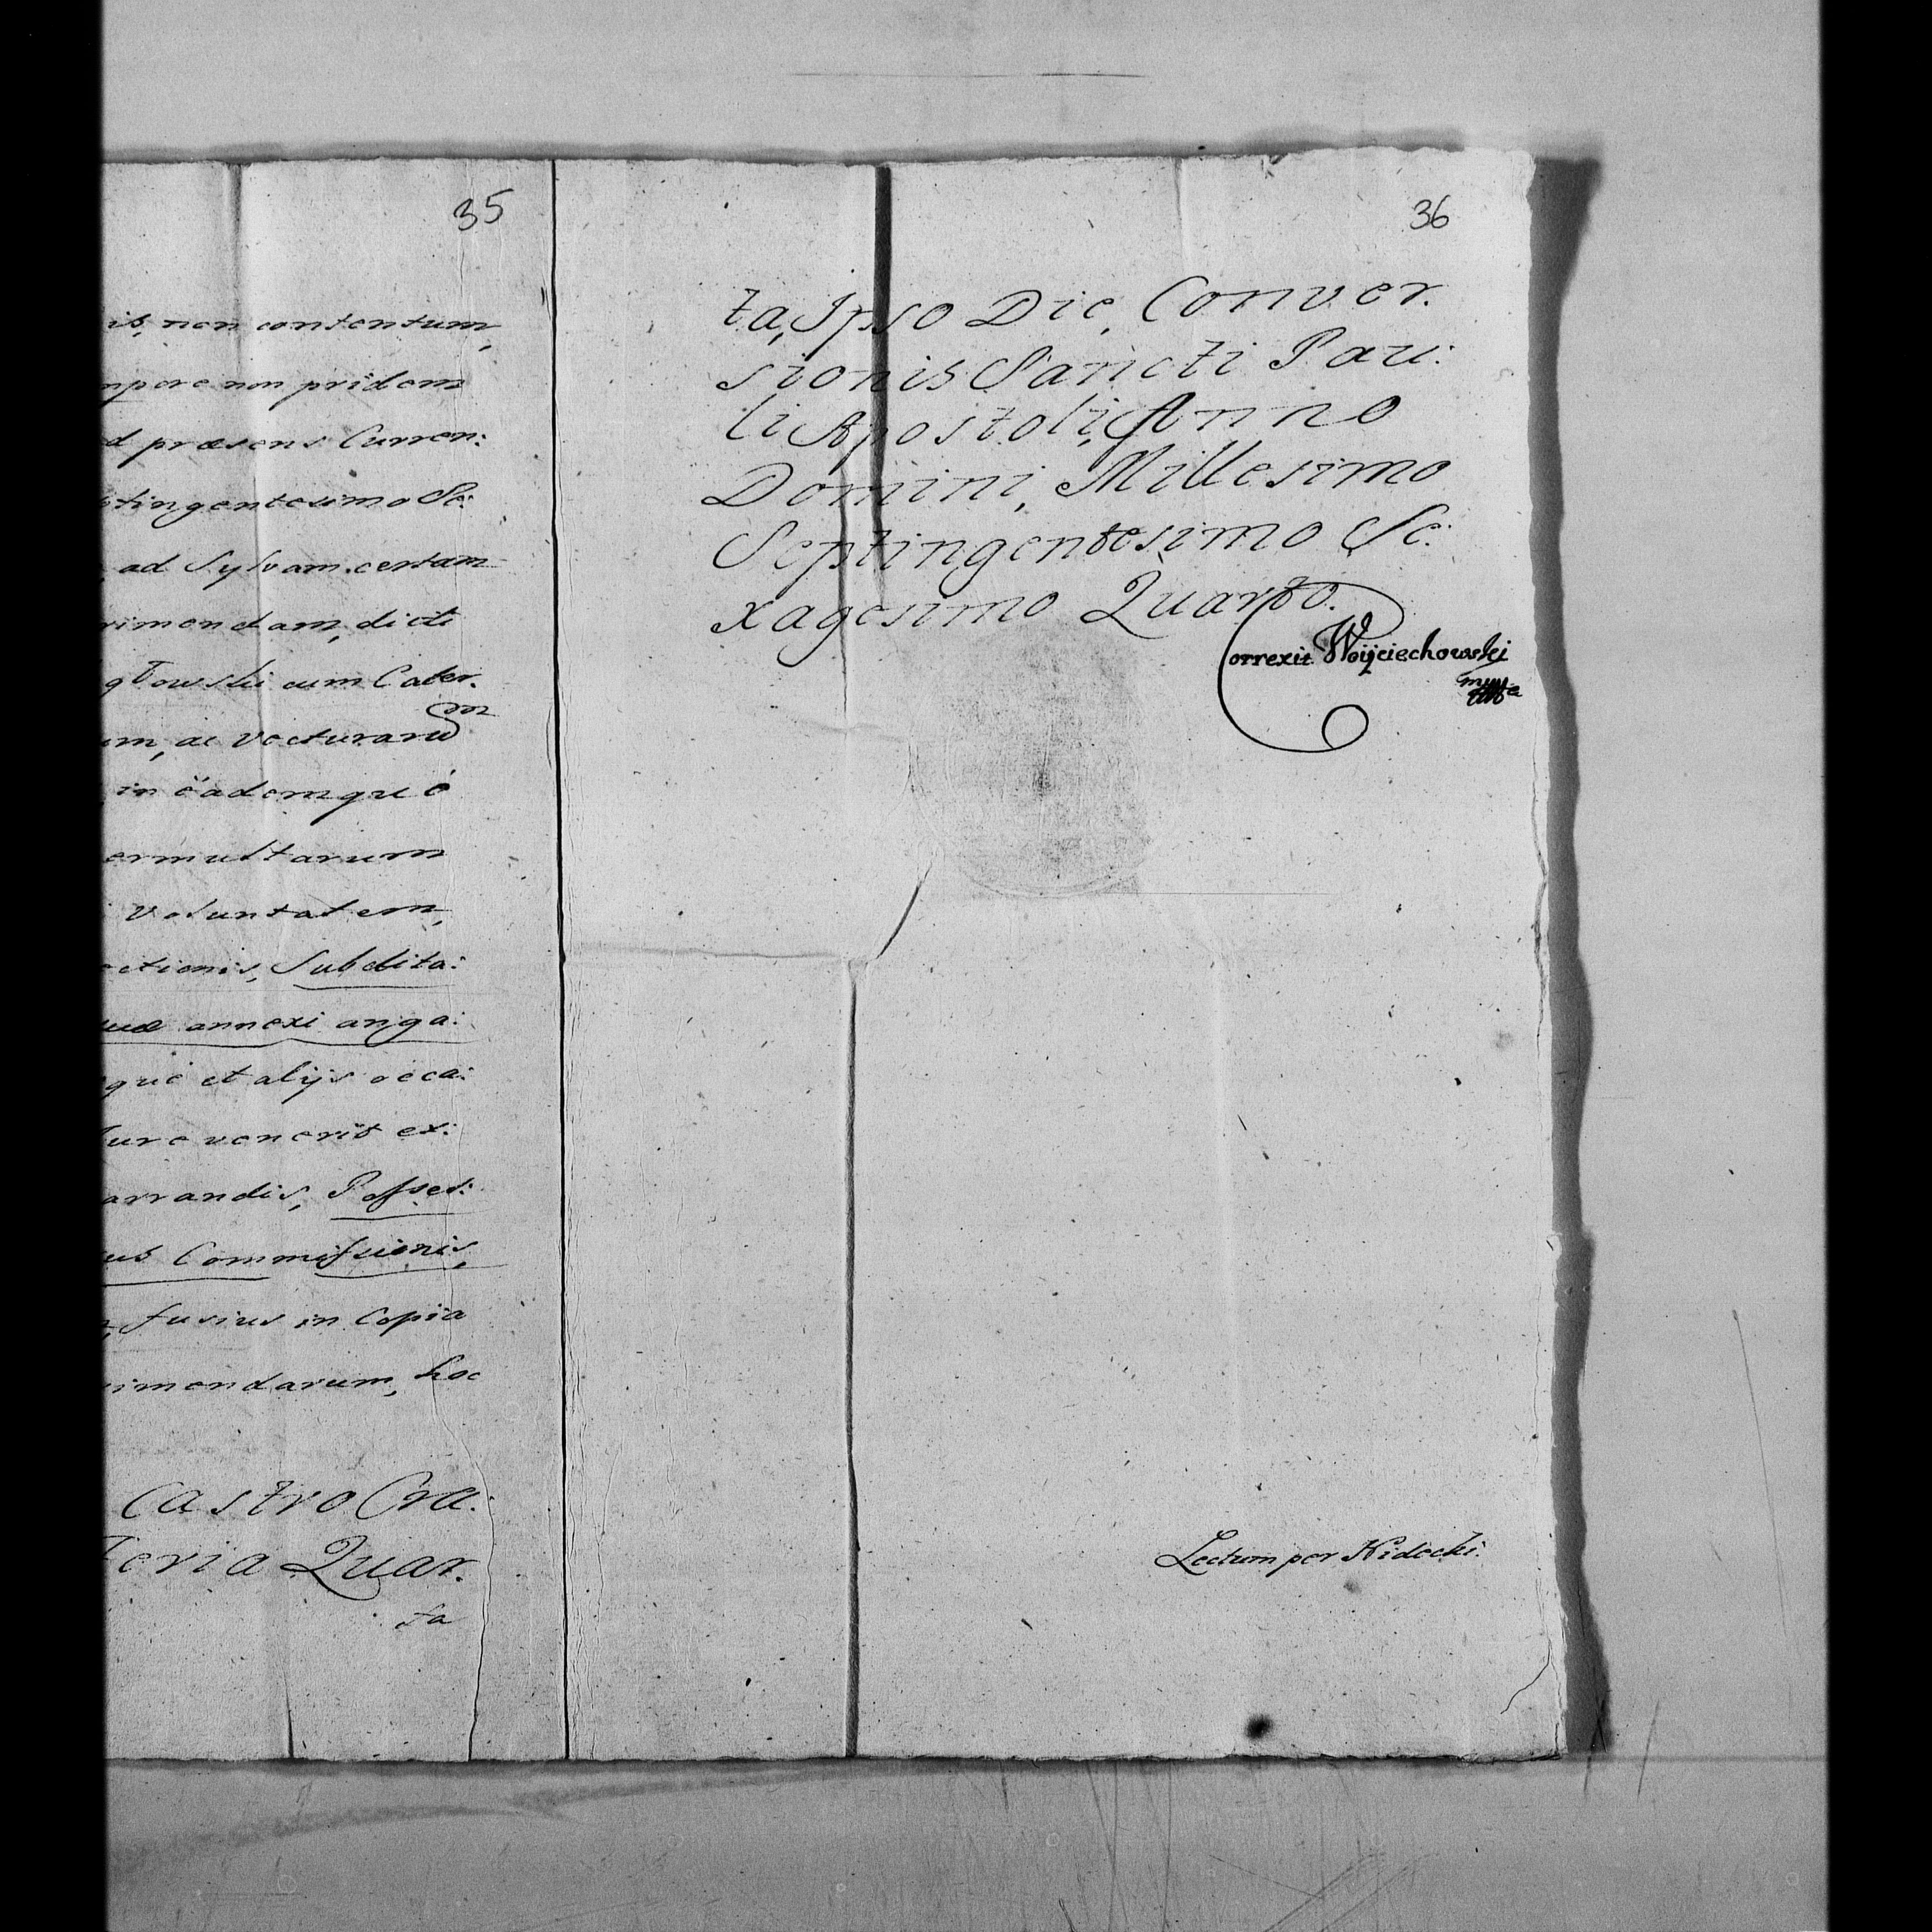 35
is, non contentum,
npore non pridem
d præsens Curren:
tingentesimo Se:
ad Sylvam certam
rimendam, dicti
głowski cum Cater.
um, ac Vecturarum
in eademque
ermultarum
Voluntatem,
ctionis, Subdita:
uæ annexi anga:
que et alijs occa:
ure venerit ex:
arrandis, Posses:
us Commissionis,
fusius in Copia
rimendarum, hoc
Castro Cra:
Feria Quar.
ta
36
ta, Ipso Die, Conver.
sionis Sancti Pau:
li Apostoli, Anno
Domini, Millesimo
Septingentesimo Se:
xagesimo Quarto.
Correxit Woyciechowski
mp
Lectum per Nidecki.